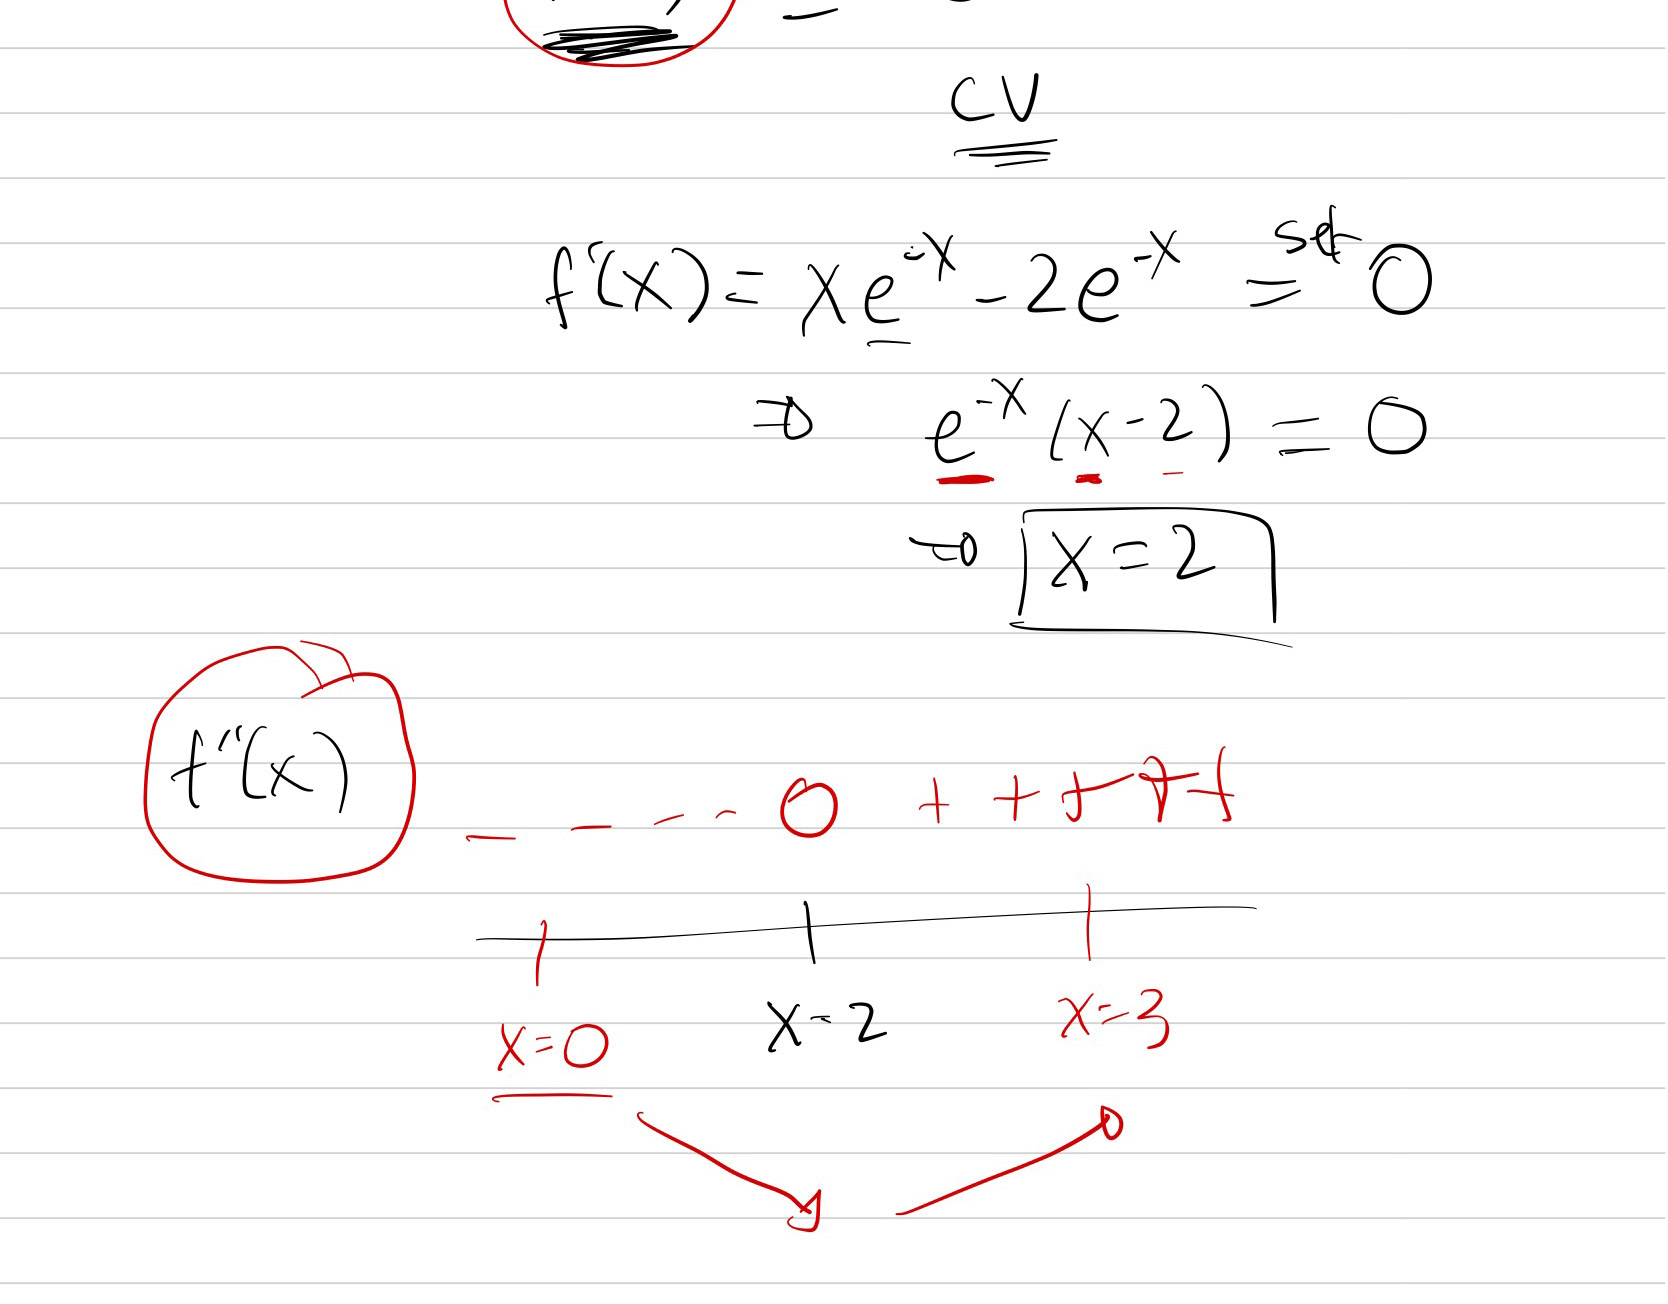 CV
f''(x) = xe^{-x} - 2e^{-x} \stackrel{set}{=} 0
⇒ e^{-x}(x-2) = 0
⇒ x = 2
f''(x) - - - - 0 + + + + +
x=0 x=2 x=3